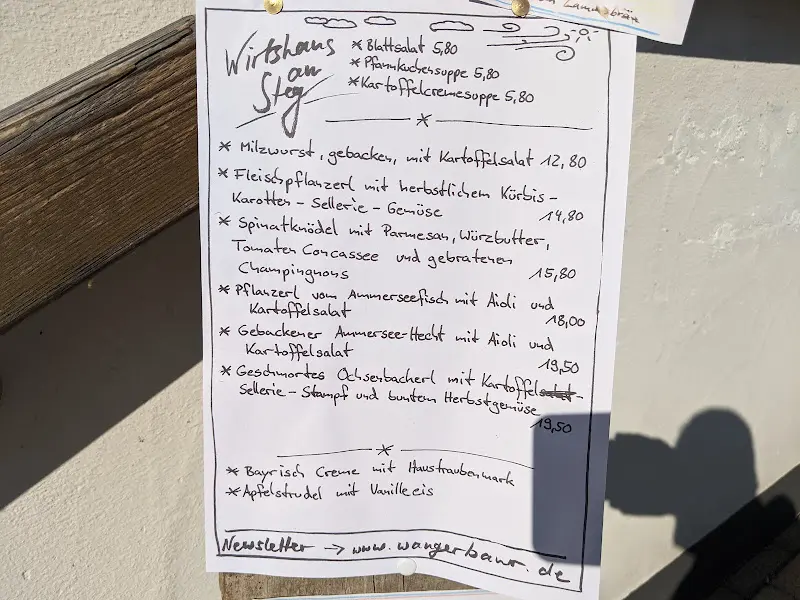 Wirtshaus
am
Steg
* Blattsalat 5,80
* Pfannkuchensuppe 5,80
* Kartoffelcremesuppe 5,80
* Milzwurst, gebacken, mit Kartoffelsalat 12,80
* Fleischpflanzerl mit herbstlichem Kürbis-
Karotten-Sellerie-Gemüse 14,80
* Spinatknödel mit Parmesan, Würzbutter,
Tomaten Concassee und gebratenen
Champingnons 15,80
* Pflanzerl vom Ammerseefisch mit Aioli und
Kartoffelsalat 18,00
* Gebackener Ammersee-Hecht mit Aioli und
Kartoffelsalat 19,50
* Geschmortes Ochsenbackerl mit Kartoffel-
Sellerie-Stampf und buntem Herbstgemüse
19,50
* Bayrisch Creme mit Haustraubenmark
* Apfelstrudel mit Vanilleeis
Newsletter → www.wangerbaur.de